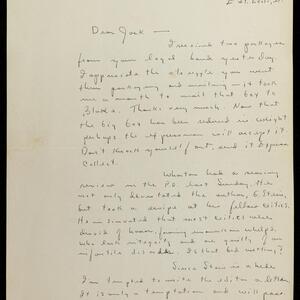 E St. Louis, Ill.
Dear Jack —
I received two packages
from your loyal hands yesterday.
I appreciate the struggle you went
thru packaging and mailing. It took
me a month to mail that box to
Blake. Thanks very much. Now that
the big box has been reduced in weight
perhaps the expressman will accept it.
Don't throck yourself out, send it Express
Collect.
Wharton had a
review in the P.D. last Sunday. He
not only devastated the author, G. Stein,
but took a swipe at his fellow critics.
He insinuated that most critics were
devoid of honor, fawning whelps,
who lack integrity and are guilty of an
infantile disorder. Is that bed wetting?
Since Stein is a
I'm tempted to write the editor a letter.
It is only a temptation and will pass.